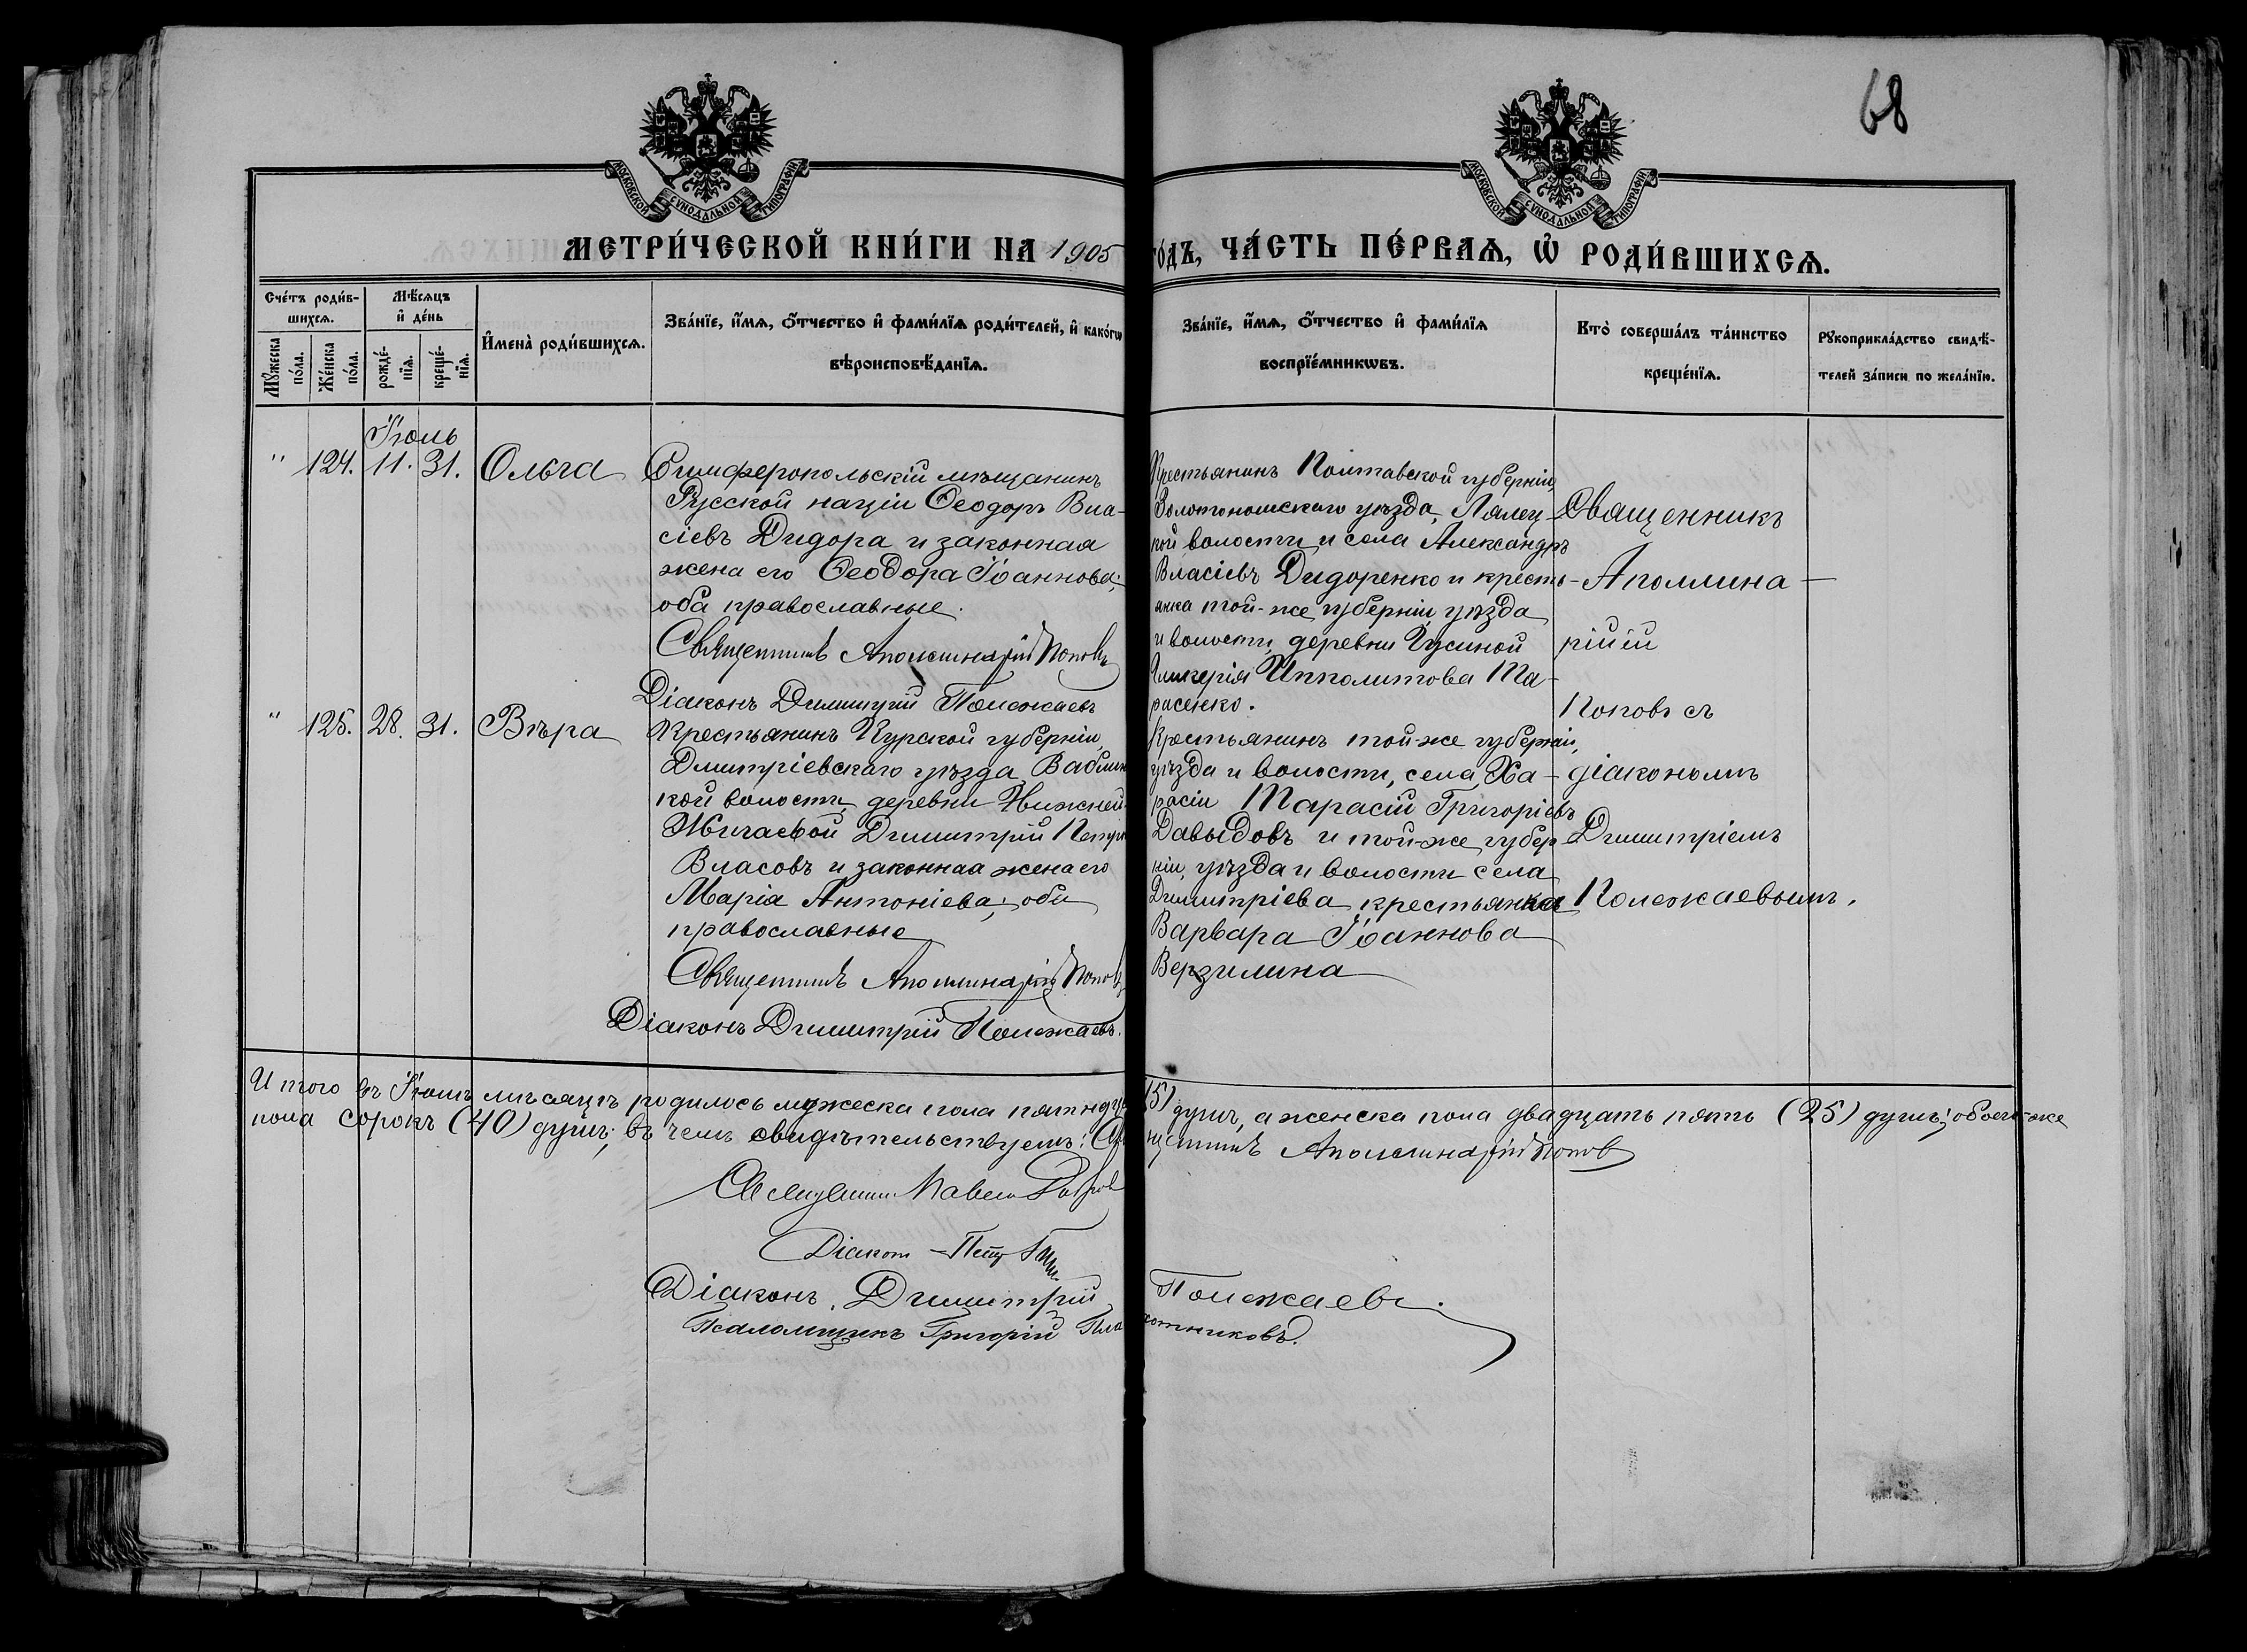 68
МОСКОВСКОЙ СѴНОДАЛЬНОЙ ТИПОГРАФІИ
МОСКОВСКОЙ СѴНОДАЛЬНОЙ ТИПОГРАФІИ
МЕТРИ́ЧЕСКОЙ КНИ́ГИ НА 1905
го́дъ, ЧА́СТЬ ПЕ́РВАѦ, Ѡ҆ РОДИ́ВШИХСѦ.
Сче́тъ роди́в-
шихсѧ.
Мꙋ́жеска по́ла.
Же́нска по́ла.
Мѣ́сѧцъ
и҆ де́нь
рожде́-
нїѧ.
креще́-
нїѧ.
И҆мена̀ роди́вшихсѧ.
Зва́нїе, и҆́мѧ, ѻ҆́тчество и҆ фами́лїѧ роди́телей, и҆ како́гѡ
вѣроисповѣ́данїѧ.
Зва́нїе, и҆́мѧ, ѻ҆́тчество и҆ фами́лїѧ
воспрїе́мникѡвъ.
Кто̀ соверша́лъ та́инство
креще́нїѧ.
Рꙋкоприкла́дство свидѣ́-
телей за́писи по жела́нїю.
Іюль
" 124. 11. 31. Ольга
Симферопольскій мѣщанинъ
Русской націи Ѳеодоръ Вла-
сіевъ Дидора и законная
жена его Ѳеодора Іоаннова;
оба православные.
Священникъ Аполлинарій Поповъ
Діаконъ Димитрій Полежаевъ
Крестьянинъ Полтавской губерніи,
Золотоношскаго уѣзда, Лялец-
кой волости и села Александръ
Власіевъ Дидоренко и кресть-
янка той-же губерніи, уѣзда
и волости, деревни Гусиной
Гликерія Ипполитова Та-
расенко.
Священникъ
Аполлина-
рійй
Поповъ съ
діакономъ
Димитріемъ
Полежаевымъ.
" 125. 28. 31. Вѣра
Крестьянинъ Курской губерніи,
Дмитріевскаго уѣзда,
кой волости, деревни Нижней
Димитрій Петро
Власовъ и законная жена его
Марія Антоніева; оба
православные
Священникъ Аполлинарій Поповъ
Діаконъ Димитрій Полежаевъ.
Крестьянинъ той-же губерніи,
уѣзда и волости, села Ха-
расіи Тарасій Григоріевъ
Давыдовъ и той-же губер
ніи, уѣзда и волости села
Димитріева крестьянка
Варвара Іоаннова
Верзилина
Итого въ Іюлѣ мѣсяцѣ родилось мужеска пола пятнадца
15) душъ, а женска пола двадцать пять (25) душъ; обоего-же
пола сорокъ (40) душъ; въ чемъ свидѣтельствуемъ: Свя
щенникъ Аполлинарій Поповъ
Священникъ Павелъ
Діаконъ Петръ
Діаконъ Димитрій Полежаевъ.
Псаломщикъ Григорій Плахотниковъ.